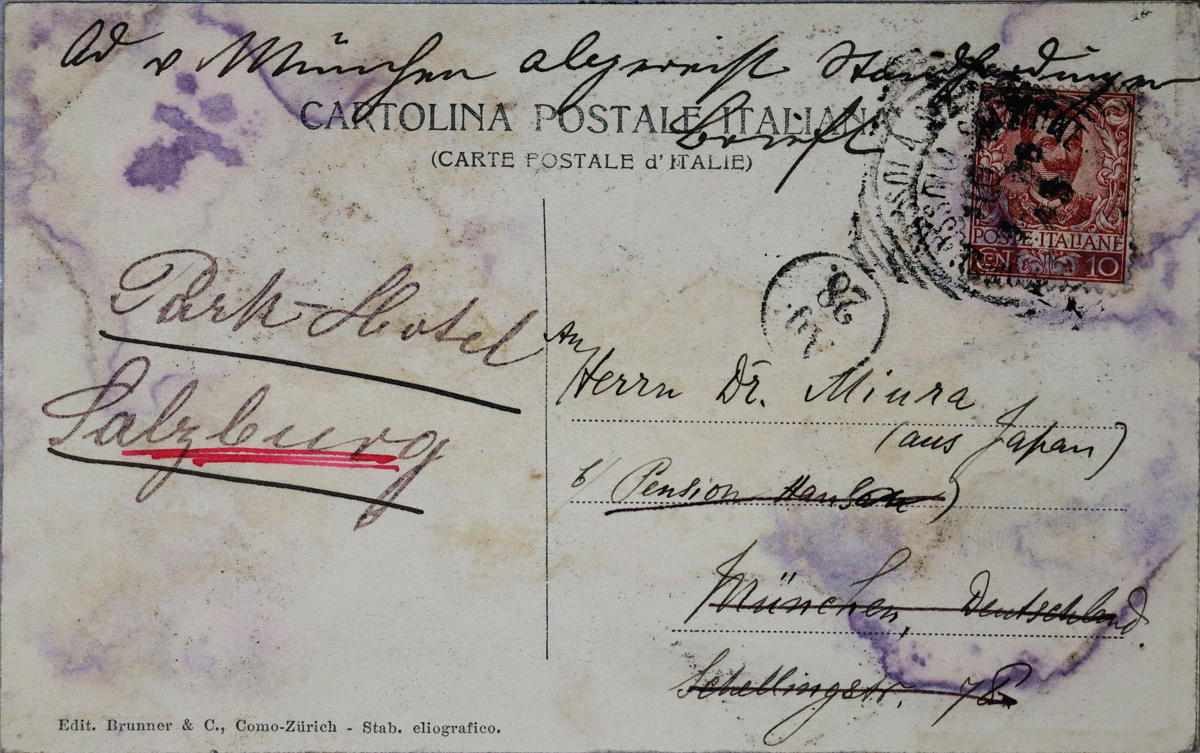 Ad v München abgereist
CARTOLINA POSTALE ITALIANA
(CARTE POSTALE d'ITALIE)
POSTE·ITALIANE
CEN 10
28.
Park-Hotel
Salzburg
An
Herrn Dr. Miura
(aus Japan)
b/ Pension
München, Deutschland.
Schellingstr. 78
Edit. Brunner & C., Como-Zürich - Stab. eliografico.